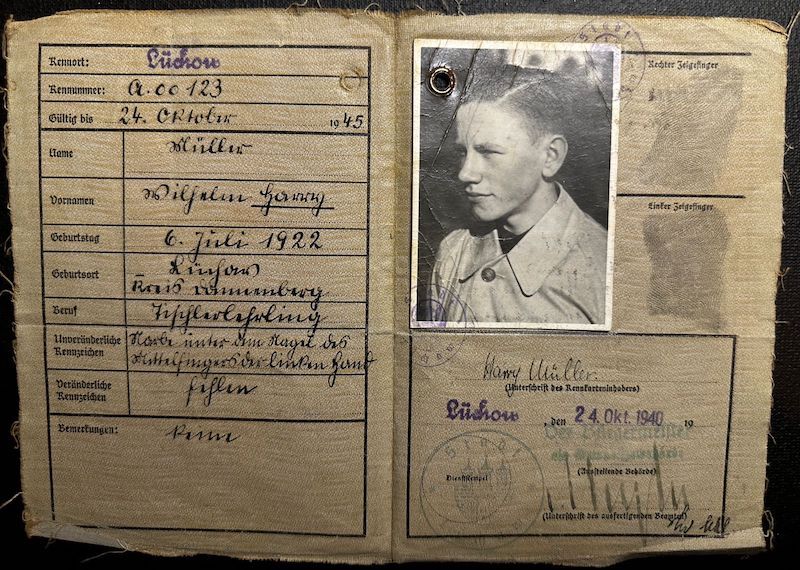 Kennort: Lüchow
Kennummer: A.00123
Gültig bis 24. Oktober 1945
Name Müller
Vornamen Wilhelm Harry
Geburtstag 6. Juli 1922
Geburtsort Lüchow
Kreis Dannenberg
Beruf Tischlerlehrling
Unveränderliche Kennzeichen Narbe unter dem Nagel des
Mittelfingers der linken Hand
Veränderliche Kennzeichen fehlen
Bemerkungen: keine
Stadt
Rechter Zeigefinger
Linker Zeigefinger
Harry Müller.
(Unterschrift des Kennkarteninhabers)
Lüchow, den 24. Okt. 1940 19
Der Bürgermeister
als
(Ausstellende Behörde)
Stadt
Dienststempel
(Unterschrift des ausfertigenden Beamten)